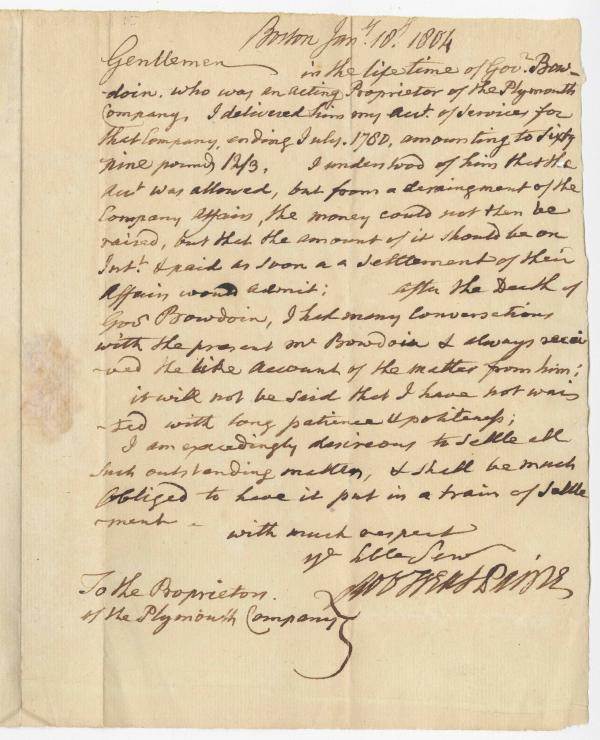 Boston Jany. 18th. 1804
Gentlemen in the life time of Govr. Bow-
-doin. who was an acting Proprietor of the Plymouth
Company, I delivered him my Acct. of Services for
that Company, ending July. 1780. amounting to Sixty
nine pounds 12/3. I understood of him that the
Acct was allowed, but from a deraingment of the
Company Affairs, the money could not then be
raised, but that the amount of it should be on
Intt. & paid as soon a a settlement of their
Affairs would admit; after the Death of
Govr Bowdoin, I had many conversations
with the present Mr Bowdoin & always recei
-ved the like Account of the matter from him;
it will not be said that I have not wai
-ted with long patience & politeness;
I am exceedingly desireous to Settle all
Such outstanding matters, & shall be much
Obliged to have it put in a train of Settle
-ment -
with much respect
yr hble Serv
Rob Treat Paine
To the Proprietors.
of the Plymouth Company